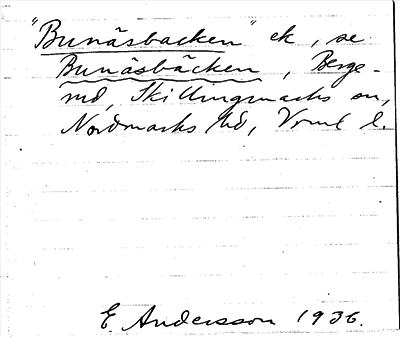 "Bunäsbacken" ek, se
Bunäsbäcken, Berge-
rud, Skillingmarks sn,
Nordmarks hd, Vrml l.
E. Andersson 1936.